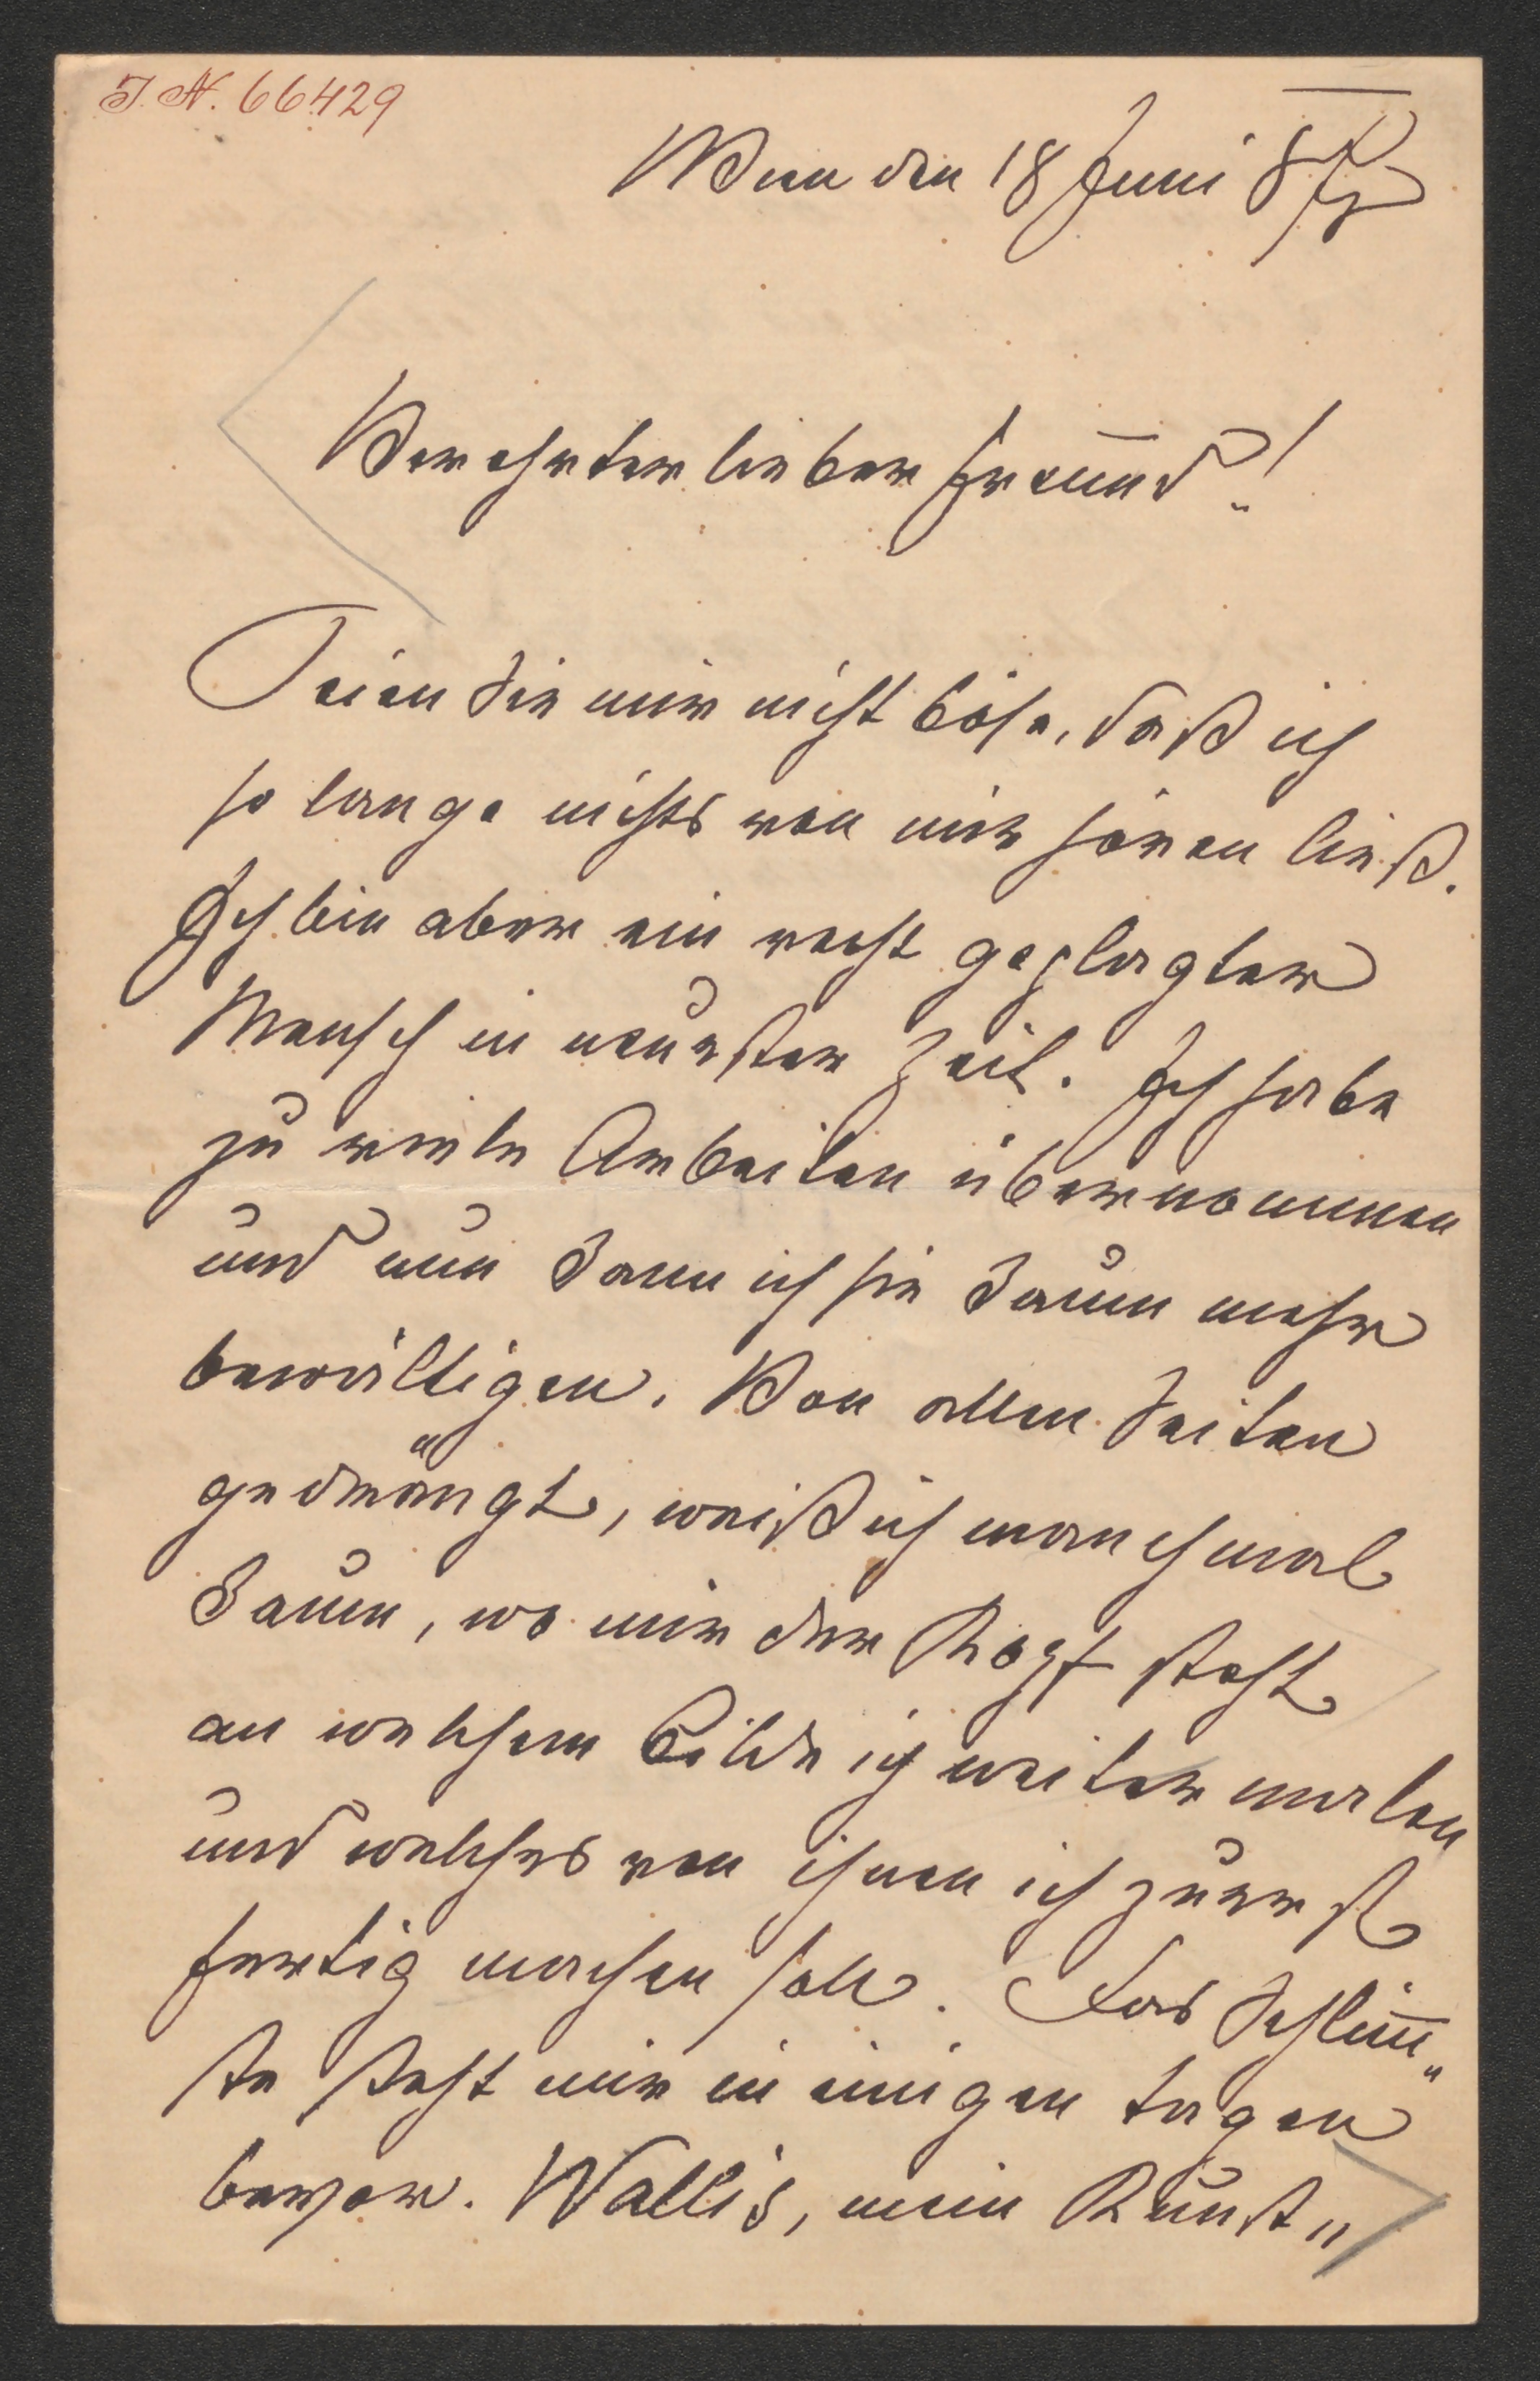 I. N. 66429
Wien den 18 Juni
Verehrter lieber Freund!
Seien Sie mir nicht böse, daß ich
so lange nichts von mir hören ließ.
Ich bin aber ein recht geplagter
Mensch in neuester Zeit. Ich habe
zu viele Arbeiten übernommen
und nun kann ich sie kaum mehr
bewältigen. Von allen Seiten
gedrängt, weiß ich manchmal
kaum, wo mir der Kopf steht
an welchem Bilde ich weiter malen
und welches von ihnen ich zuerst
fertig machen soll. Das Schlim̅„
ste steht mir in einigen Tagen
bevor. Wallis, mein Kunst„